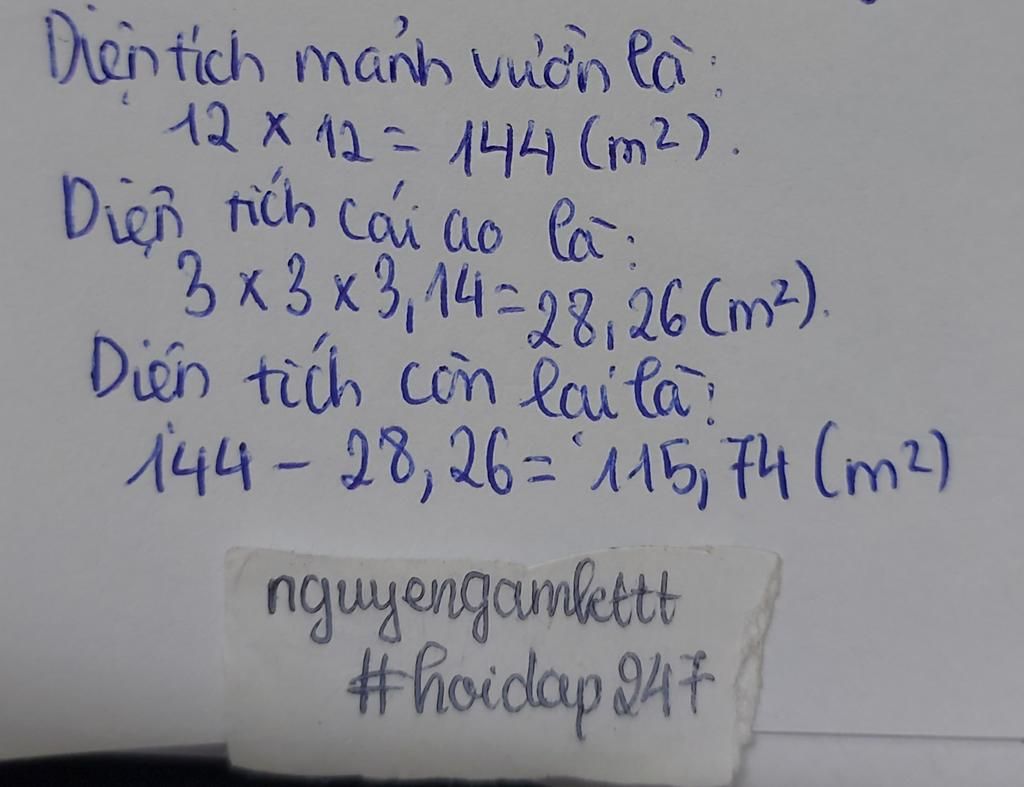 Diện tích mảnh vườn là:
12 x 12 = 144 (m²).
Diện tích cái ao là:
3 x 3 x 3,14 = 28,26 (m²).
Diện tích còn lại là:
144 - 28,26 = 115,74 (m²)
nguyengamkttt
#hoidap247